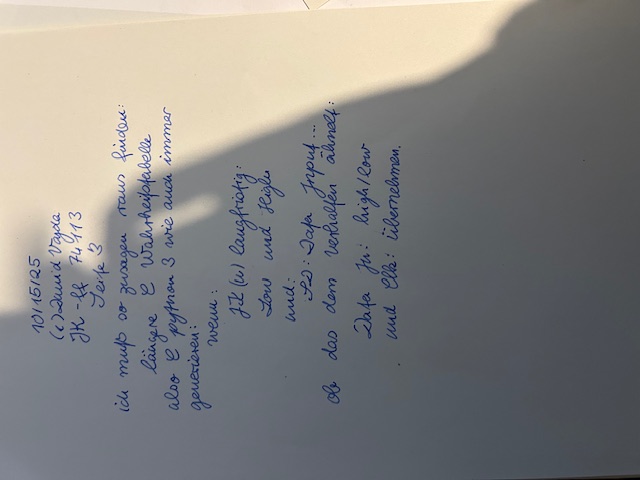 10/15/25
(c) David Vajda
JK-ff 74113
Seite 3
ich muß so zusagen raus finden:
längere C Wahrheitstabelle
also C python 3 wie auch immer
generieren:
wenn:
JK(w) langfristig:
Low und High
und:
SD: Data Input...
ob das dem verhalten ähnelt:
Data In: high/low
und Clk: übernehmen.